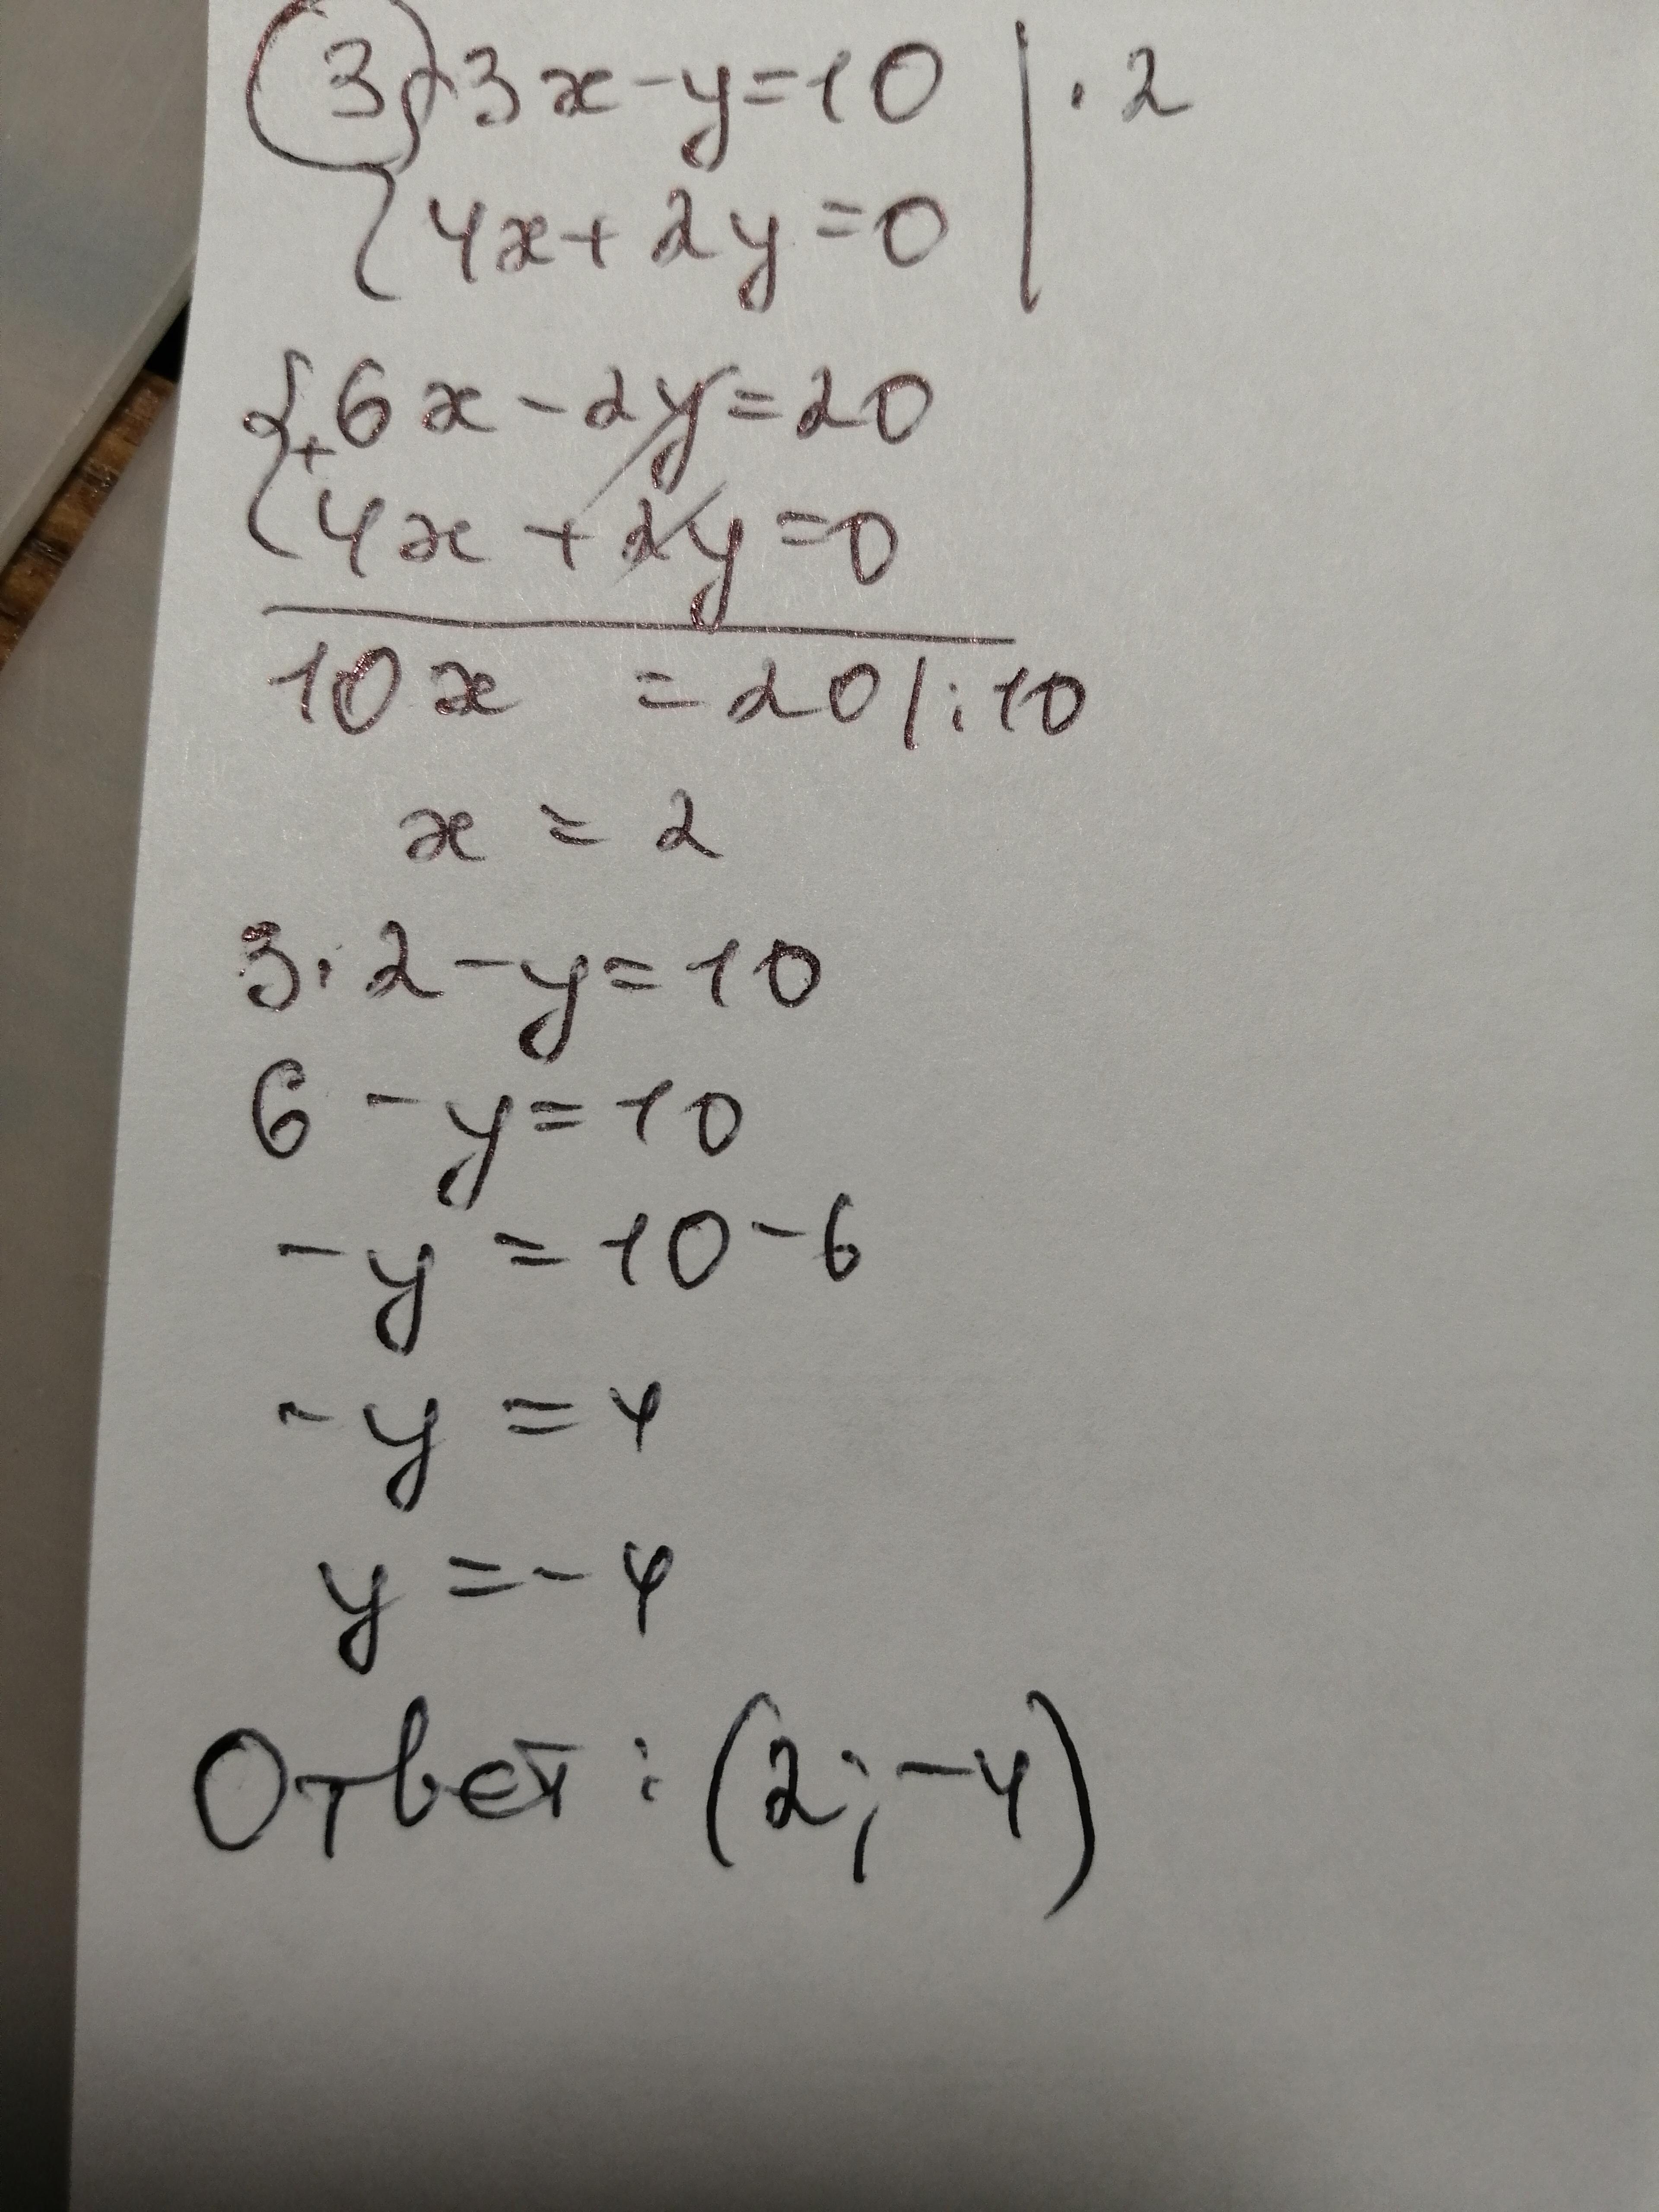 3) { 3x - y = 10 | · 2
4x + 2y = 0
{ + 6x - 2y = 20
4x + 2y = 0
10x = 20 | : 10
x = 2
3 · 2 - y = 10
6 - y = 10
- y = 10 - 6
- y = 4
y = - 4
Ответ : (2; -4)